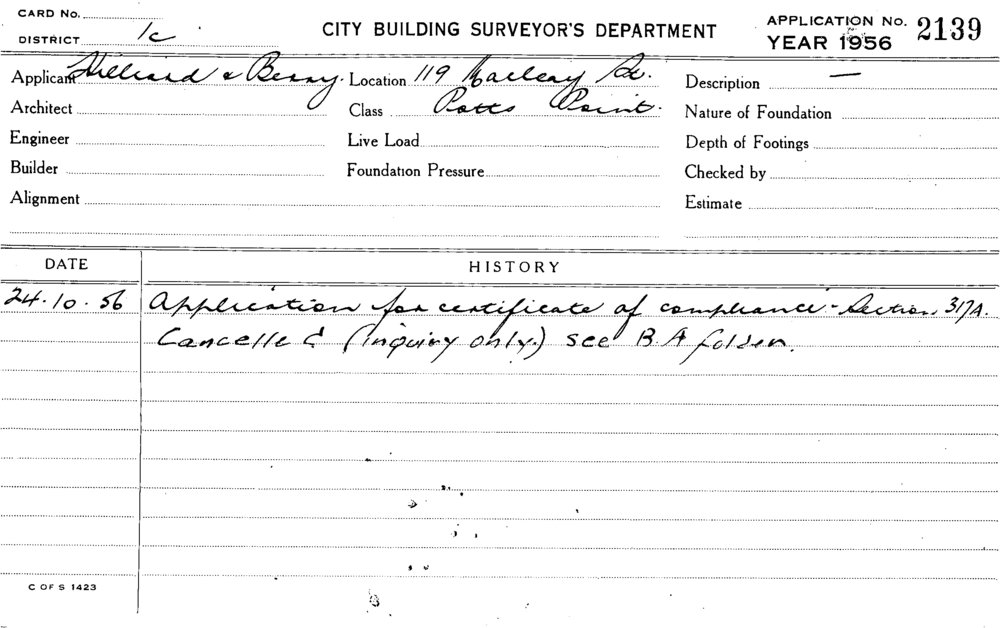 CARD No.
DISTRICT 1c
CITY BUILDING SURVEYOR'S DEPARTMENT
APPLICATION No. 2139
YEAR 1956
Applicant Hilliard & Berry. Location 119 Macleay St. Description —
Architect Class Potts Point. Nature of Foundation
Engineer Live Load Depth of Footings
Builder Foundation Pressure Checked by
Alignment Estimate
DATE HISTORY
24.10.56 Application for certificate of compliance - Section 317A.
Cancelled (inquiry only.) see B.A folder.
C OF S 1423